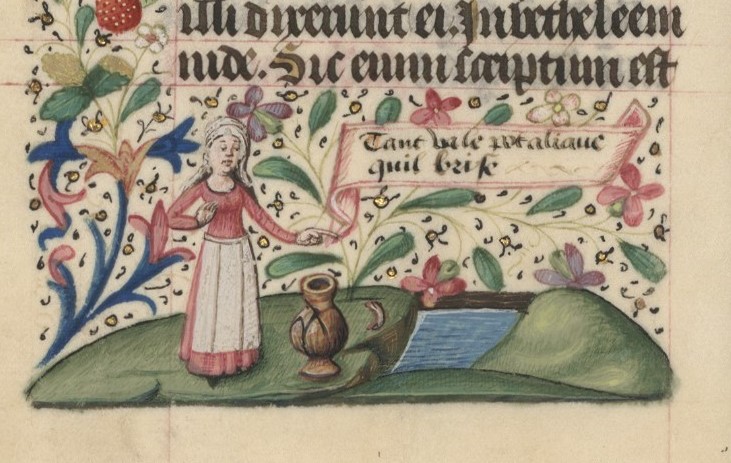 illi dixerunt ei. In betheleem
iude. Sic enim scriptum est
Tant va le pot a liaue
quil brise